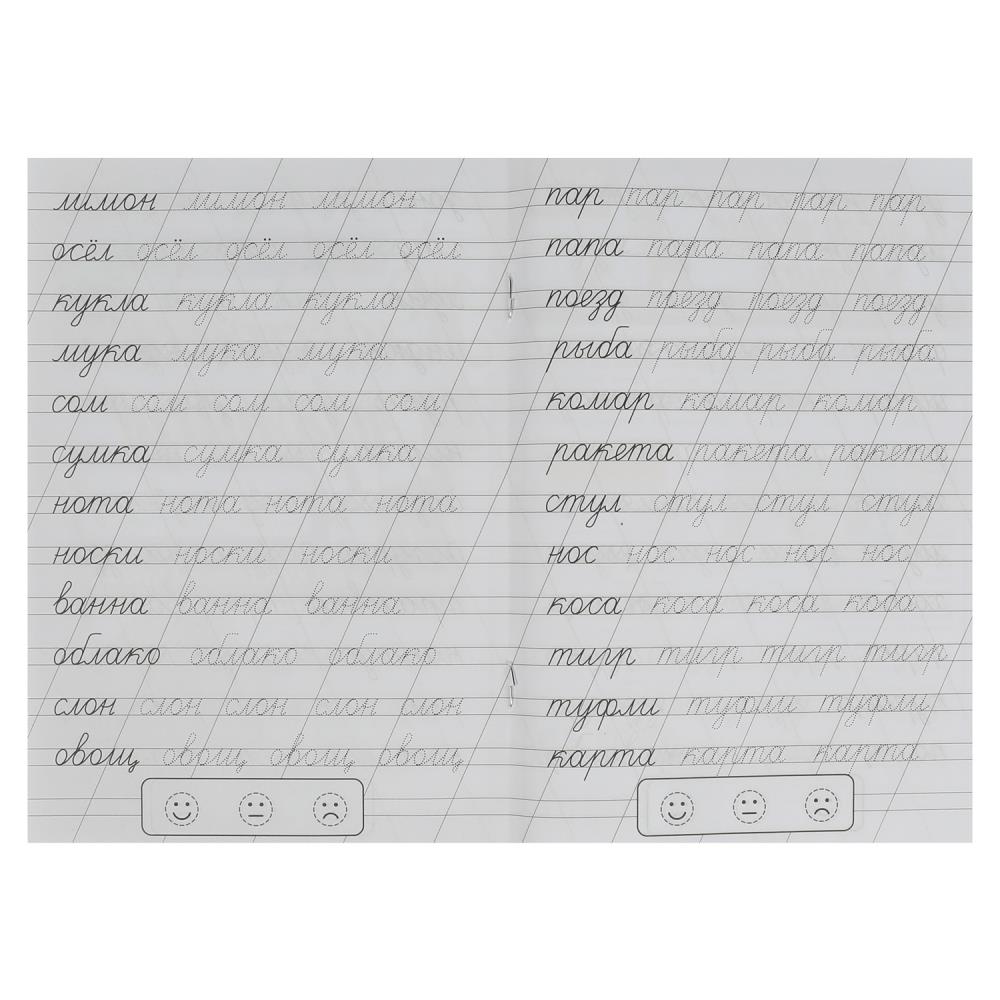 лимон лимон лимон
осёл осёл осёл осёл осёл
кукла кукла кукла
мука мука мука
сом сом сом сом сом
сумка сумка сумка
нота нота нота нота
носки носки носки
ванна ванна ванна
облако облако облако
слон слон слон слон слон
овощ овощ овощ овощ
пар пар пар пар пар
папа папа папа папа
поезд поезд поезд поезд
рыба рыба рыба рыба
комар комар комар
ракета ракета ракета
стул стул стул стул
нос нос нос нос нос
коса коса коса коса
тигр тигр тигр тигр
туфли туфли туфли
карта карта карта